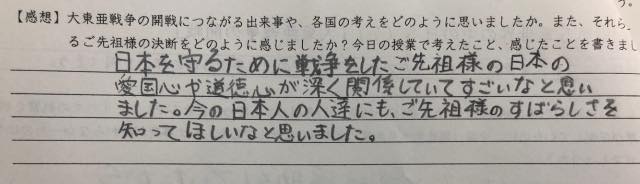 う。
【感想】大東亜戦争の開戦につながる出来事や、各国の考えをどのように思いましたか。また、それら
るご先祖様の決断をどのように感じましたか？今日の授業で考えたこと、感じたことを書きまし
日本を守るために戦争をしたご先祖様の日本の
愛国心や道徳心が深く関係していてすごいなと思い
ました。今の日本人の人達にも、ご先祖様のすばらしさを
知ってほしいなと思いました。